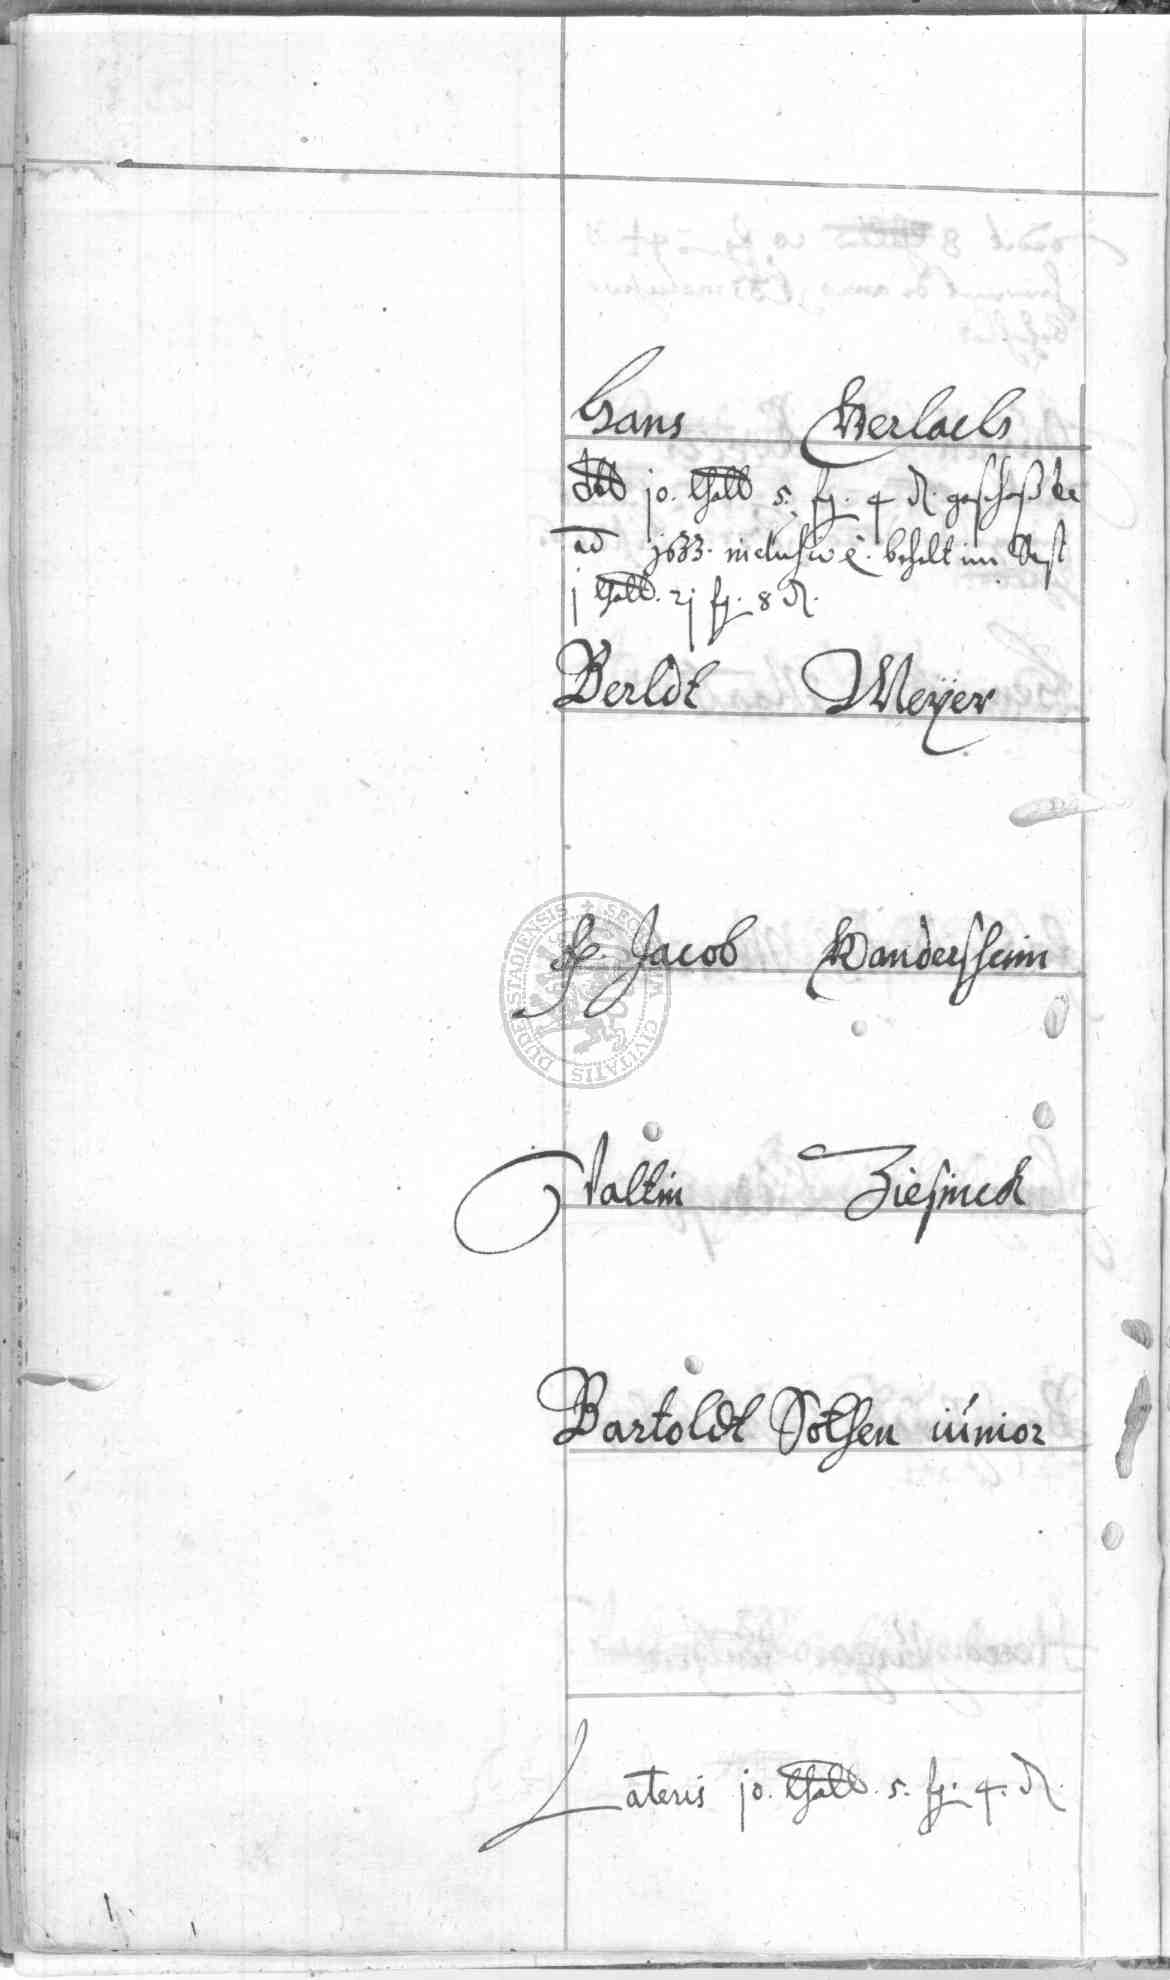 Hans Gerlachs
dedit jo. thall 5. ß. 4 d. geschoß de
ad j633. inclusive. behelt im Rest
j thall. 2j ß. 8 d.
Berldt Meÿer
Jacob Gandersheim
Valtin Ziesineck
Bartoldt Sothen iúnior
Lateris jo. thall. 5. ß. 4. d.
SECRETUM CIVITATIS DUDERSTADIENSIS